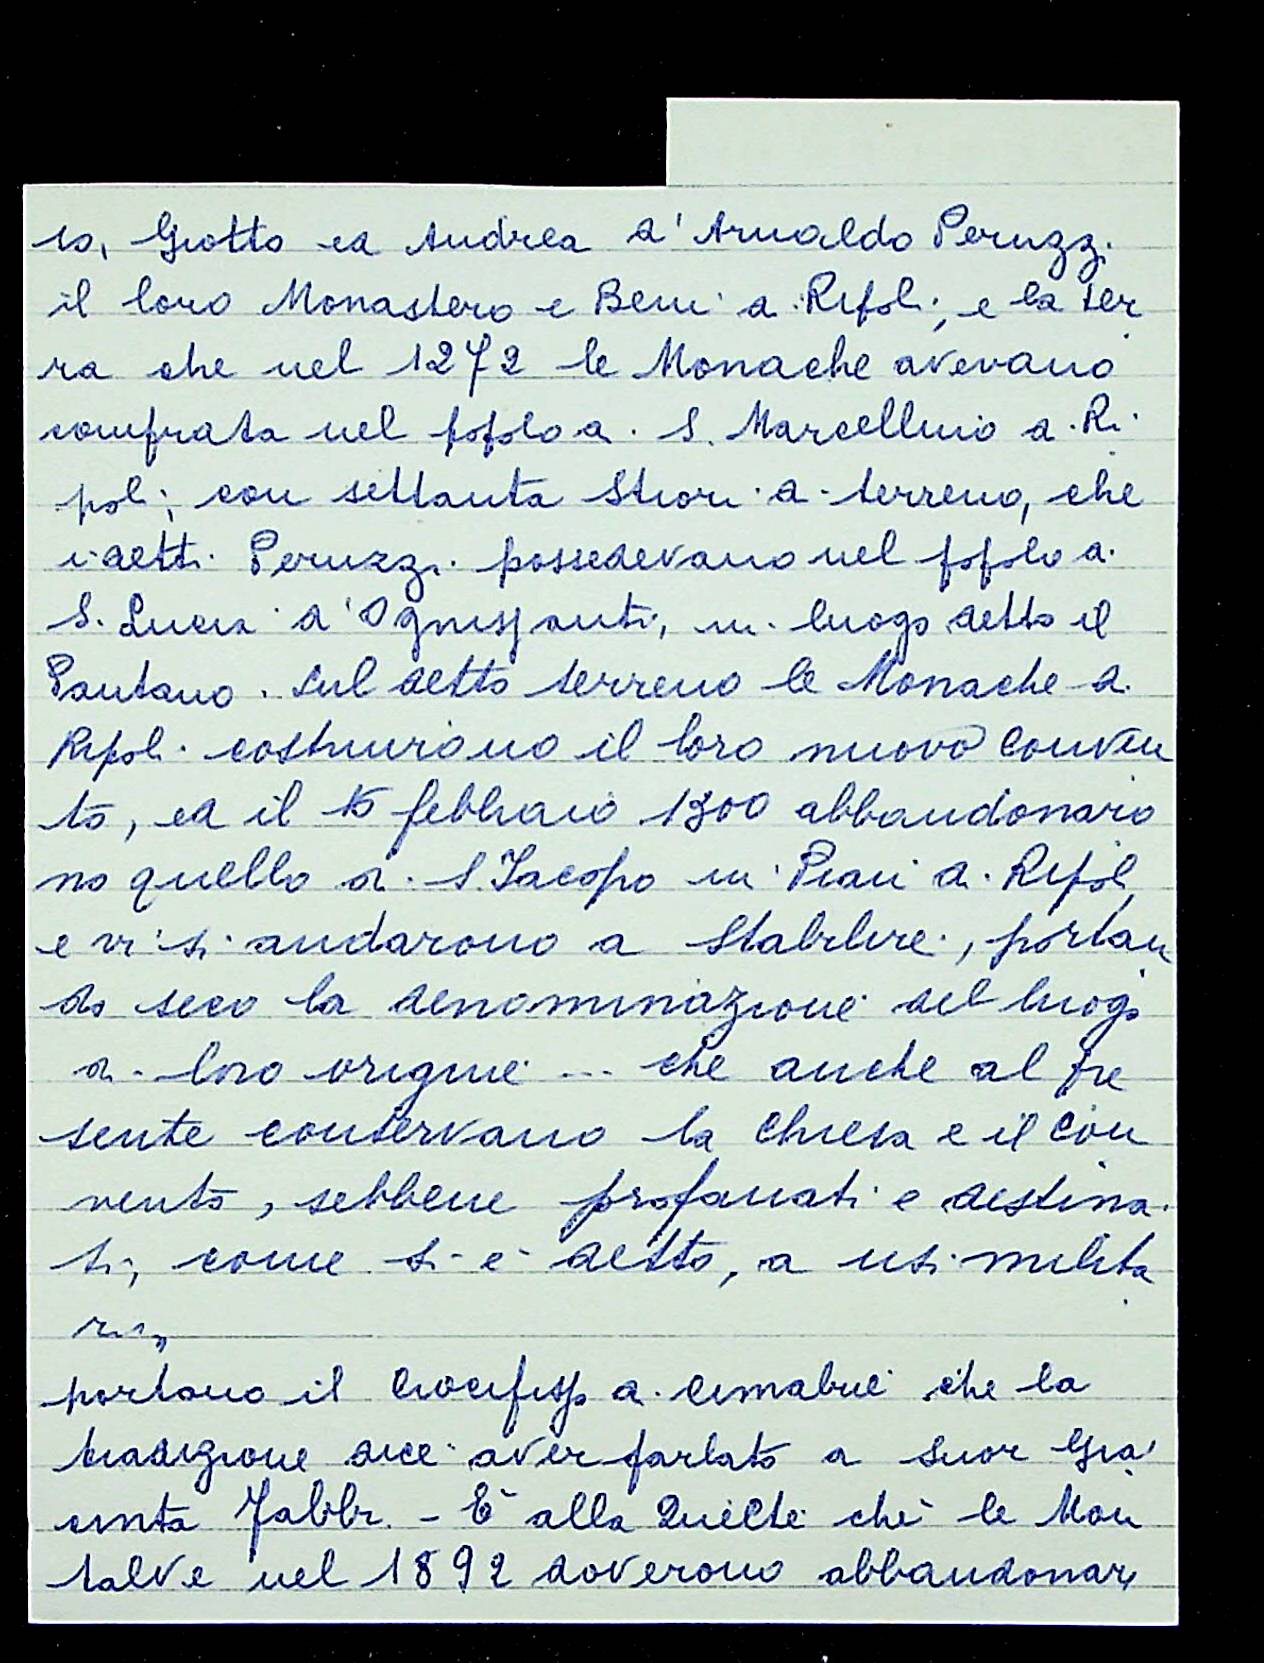 to, Giotto ed Andrea d'Arnoldo Peruzzi
il loro Monastero e Beni di Ripoli, e la ter
ra che nel 1272 le Monache avevano
comprata nel popolo di S. Marcellino a Ri
poli; con settanta Stiori di terreno, che
i detti Peruzzi possedevano nel popolo di
S. Lucia d'Ognissanti, in luogo detto il
Pantano. Sul detto terreno le Monache di
Ripoli costruirono il loro nuovo Conven
to, ed il 15 febbraio 1300 abbandonaro
no quello di S. Iacopo in Pian di Ripoli
e vi si andarono a stabilire, portan
do seco la denominazione del luogo
di loro origine ... che anche al pre
sente conservano la Chiesa e il Con
vento, sebbene profanati e destina
ti, come si è detto, a usi milita
ri„
portano il Crocifisso di Cimabue che la
tradizione dice aver parlato a Suor Gia
cinta Fabbri. - È alla Quiete che le Mon
talve nel 1892 doverono abbandonar